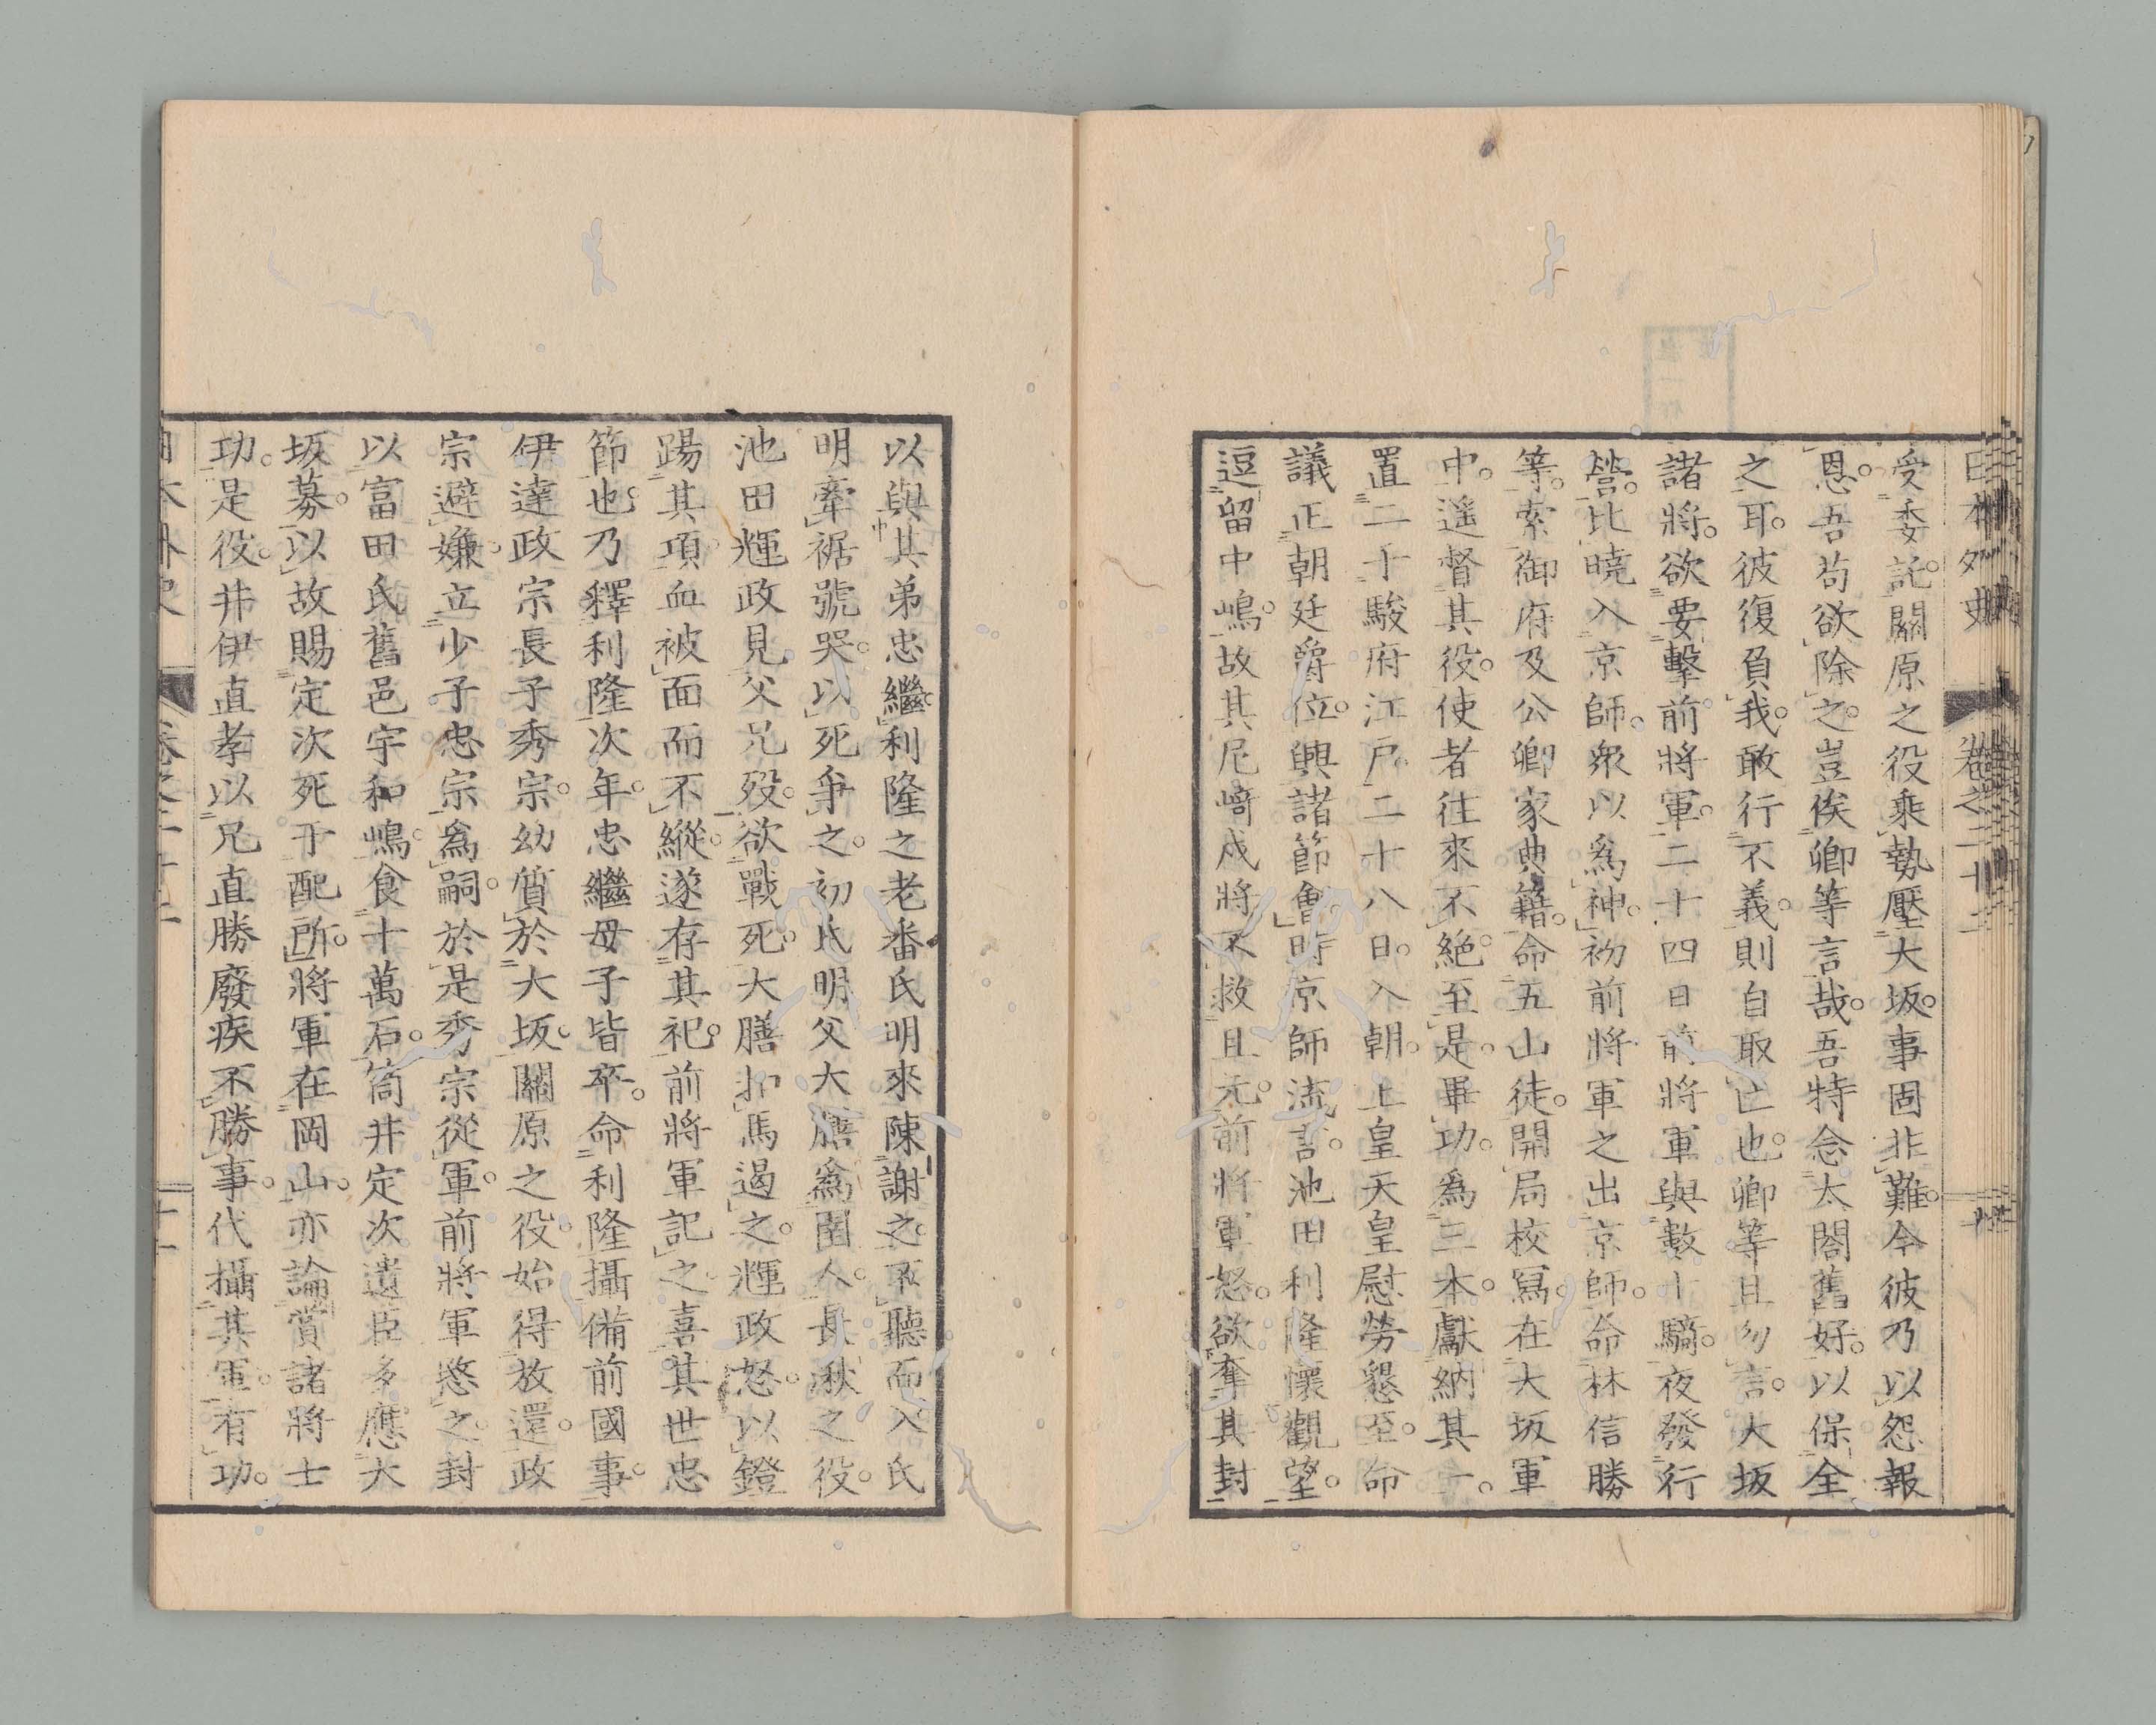 日本外史 卷之二十二
受委託。關原之役乘勢壓大坂。事固非難。今彼乃以怨報
恩。吾苟欲除之。豈俟卿等言哉。吾特念太閤舊好。以保全
之耳。彼復負我。敢行不義。則自取亡也。卿等且勿言。大坂
諸將。欲要擊前將軍。二十四日前將軍與數十騎。夜發行
營。比曉入京師。衆以爲神。初前將軍之出京師。命林信勝
等。索御府及公卿家典籍。命五山徒。開局校寫。在大坂軍
中。遥督其役。使者往來不絕。至是。畢功。爲三本。獻納其一。
置二于駿府江戶。二十八日。入朝。上皇天皇慰勞懇至。命
議正朝廷爵位。興諸節會。時京師流言。池田利隆懷觀望。
逗留中嶋。故其尼﨑戍將不救且元。前將軍怒。欲奪其封
以與其弟忠繼。利隆之老番氏明來陳謝之。不聽而入。氏
明牽裾號哭。以死爭之。初氏明父大膳爲圉人。長湫之役。
池田輝政見父兄歿。欲戰死。大膳扣馬遏之。輝政怒。以鐙
踢其項血被面而不縱。遂存其祀。前將軍記之。喜其世忠
節也。乃釋利隆。次年。忠繼母子皆卒。命利隆攝備前國事。
伊達政宗長子秀宗。幼質於大坂。關原之役。始得放還。政
宗避嫌。立少子忠宗爲嗣。於是秀宗從軍。前將軍愍之。封
以富田氏舊邑宇和嶋。食十萬石。筒井定次遺臣多應大
坂募。以故賜定次死于配所。將軍在岡山。亦論賞諸將士
功。是役。井伊直孝以兄直勝廢疾不勝事。代攝其軍。有功。
日本外史 卷之二十二 二十一